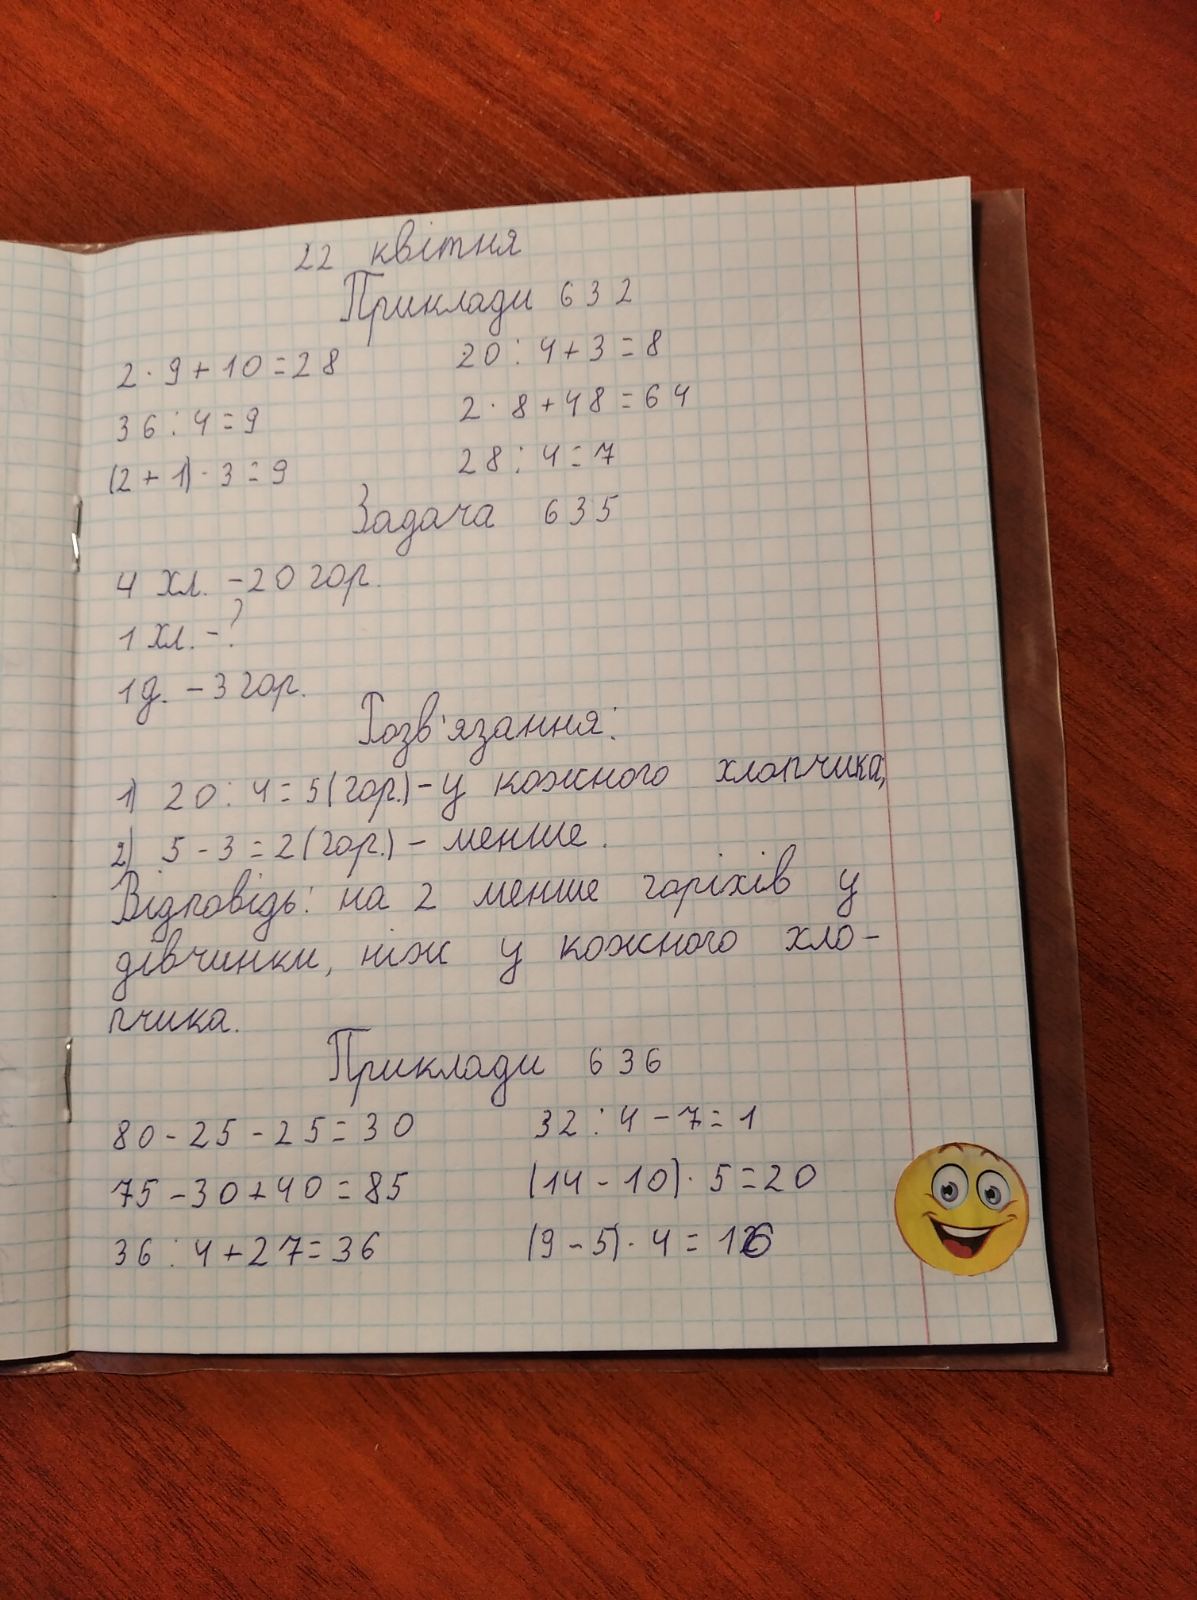 22 квітня
Приклади 632
2 · 9 + 10 = 28 20 : 4 + 3 = 8
36 : 4 = 9 2 · 8 + 48 = 64
(2 + 1) · 3 = 9 28 : 4 = 7
Задача 635
4 хл. - 20 гор.
1 хл. - ?
1 д. - 3 гор.
Розв'язання:
1) 20 : 4 = 5 (гор.) - у кожного хлопчика,
2) 5 - 3 = 2 (гор.) - менше.
Відповідь: на 2 менше горіхів у
дівчинки, ніж у кожного хло-
пчика.
Приклади 636
80 - 25 - 25 = 30 32 : 4 - 7 = 1
75 - 30 + 40 = 85 (14 - 10) · 5 = 20
36 : 4 + 27 = 36 (9 - 5) · 4 = 16